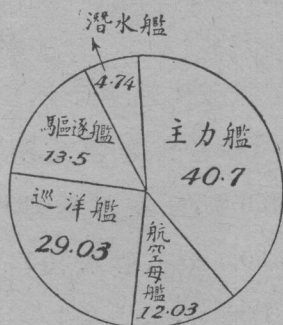 潛水艦
4.74
驅逐艦
13.5
主力艦
40.7
巡洋艦
29.03
航空母艦
12.03